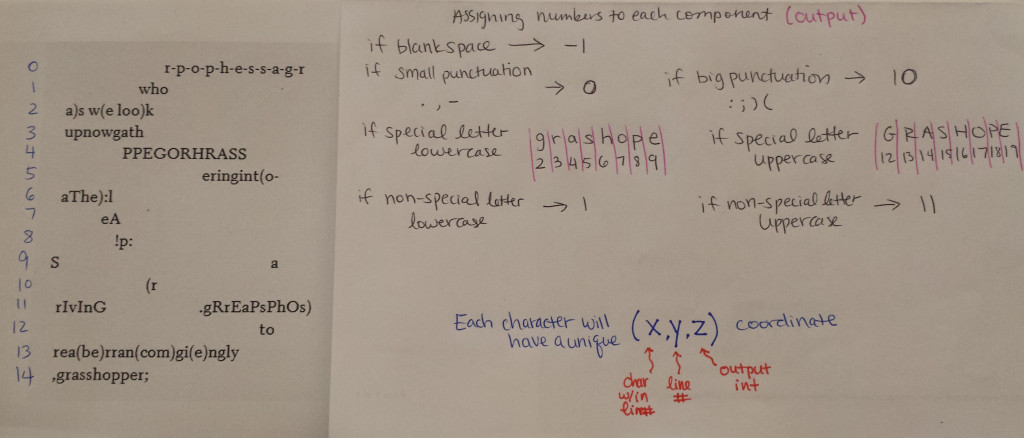 0 r-p-o-p-h-e-s-s-a-g-r
1 who
2 a)s w(e loo)k
3 upnowgath
4 PPEGORHRASS
5 eringint(o-
6 aThe):l
7 eA
8 !p:
9 S a
10 (r
11 rIvInG .gRrEaPsPhOs)
12 to
13 rea(be)rran(com)gi(e)ngly
14 ,grasshopper;
Assigning numbers to each component (output)
if blankspace → -1
if small punctuation → 0
. , -
if big punctuation → 10
: ; ) (
if special letter lowercase
g r a s h o p e
2 3 4 5 6 7 8 9
if special letter uppercase
G R A S H O P E
12 13 14 15 16 17 18 19
if non-special letter → 1
lowercase
if non-special letter → 11
uppercase
Each character will have a unique (x,y,z) coordinate
char w/in line#
line #
output int